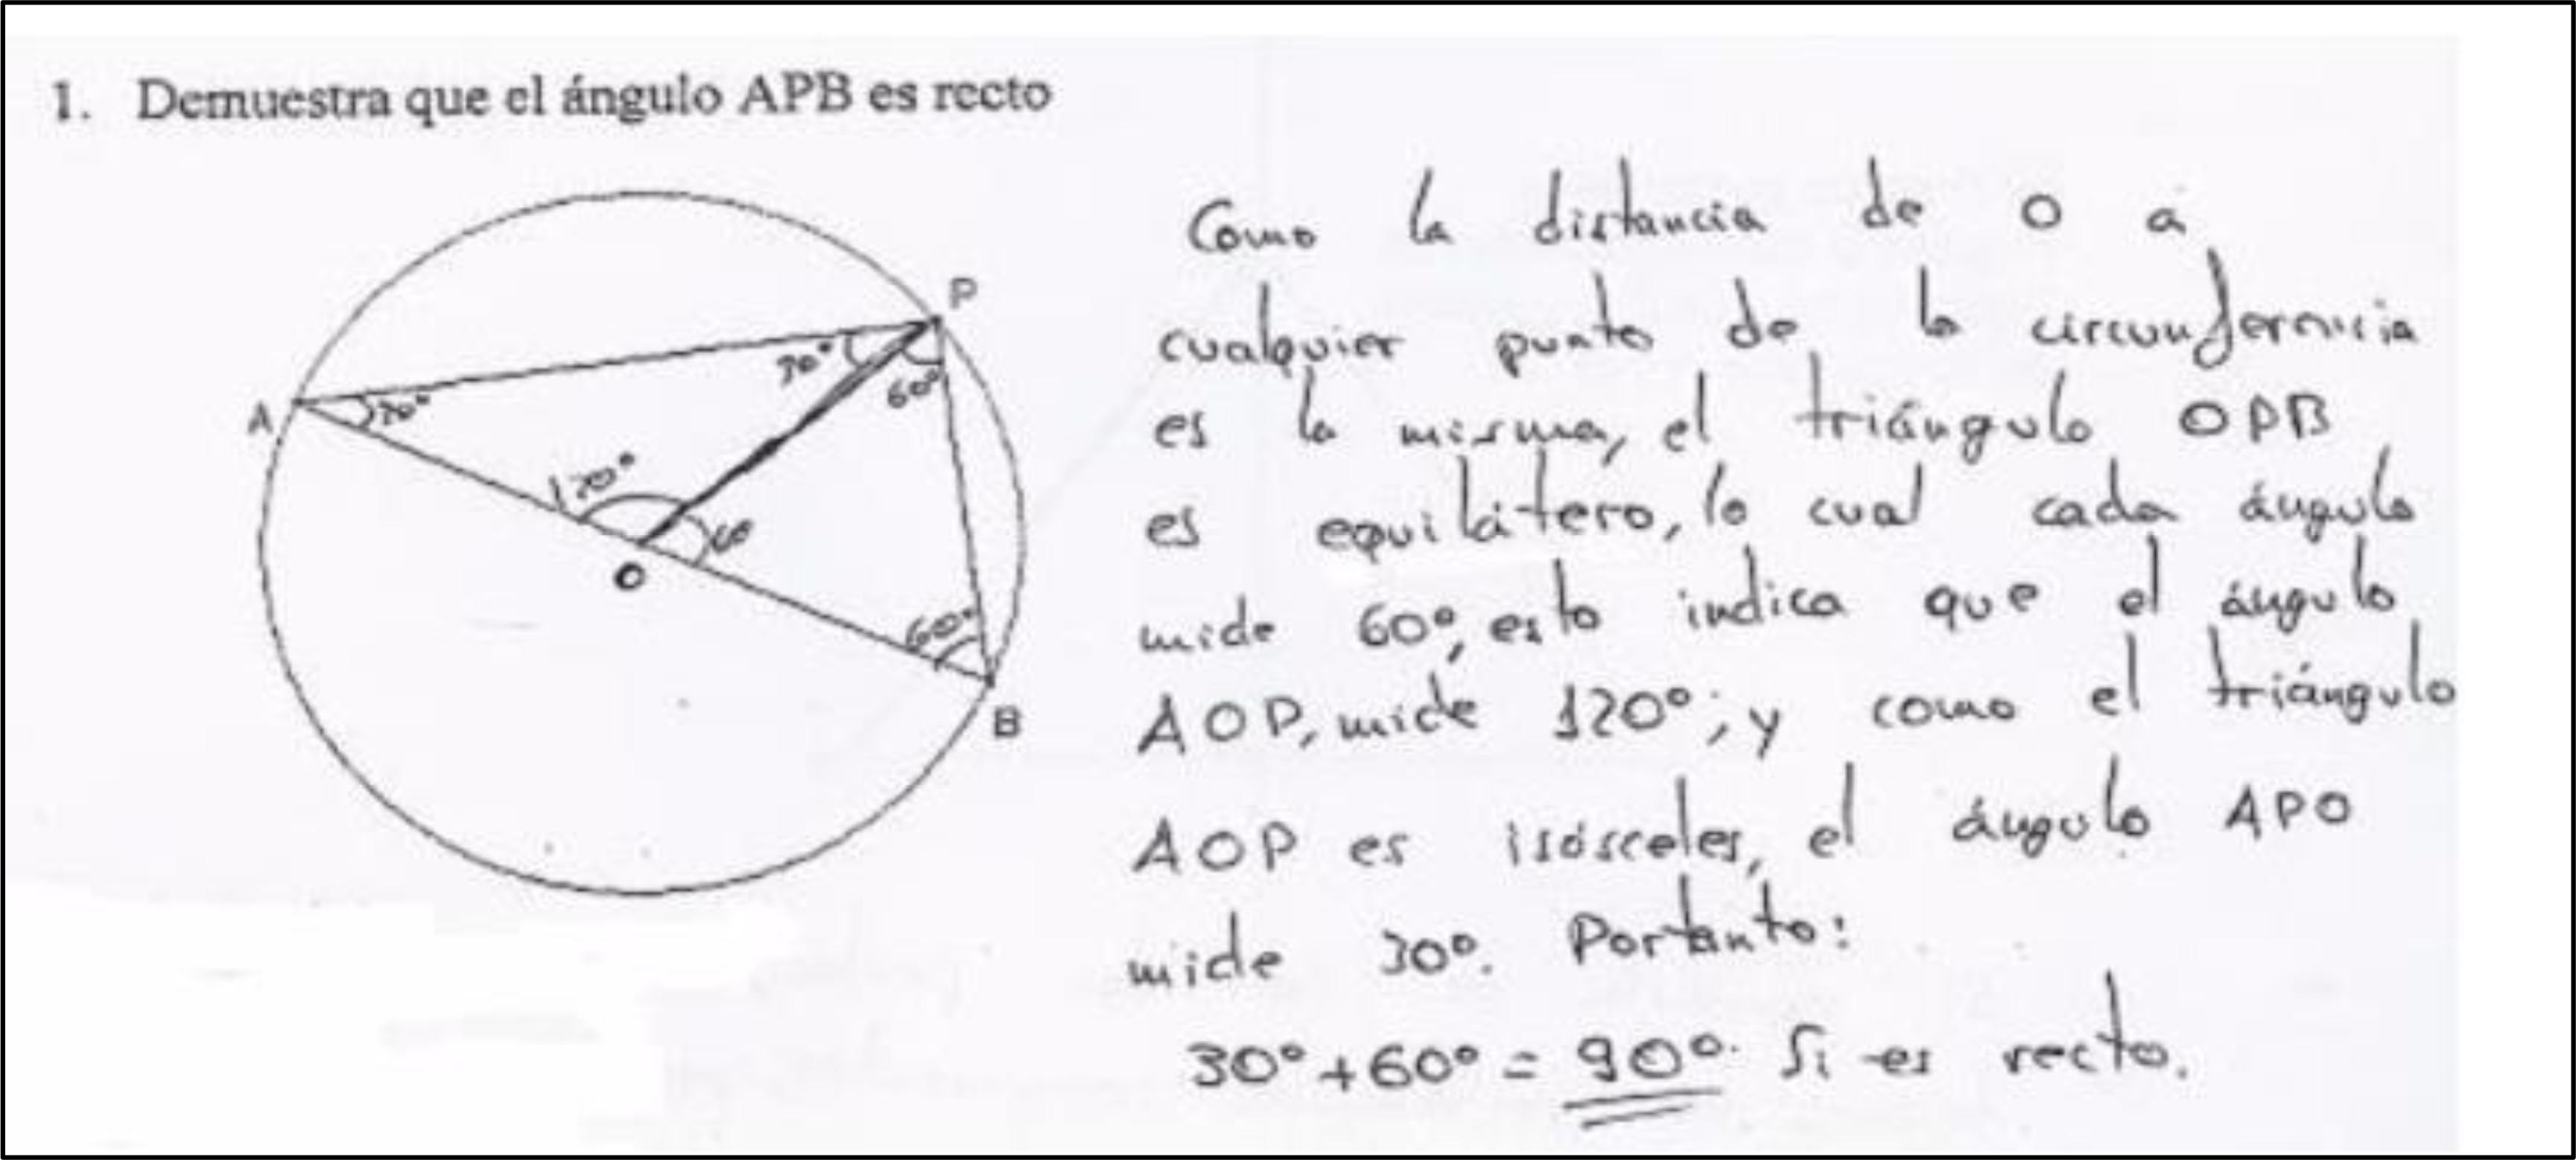 1. Demuestra que el ángulo APB es recto
Como la distancia de O a
cualquier punto de la circunferencia
es la misma, el triángulo OPB
es equilátero, lo cual cada ángulo
mide 60º, esto indica que el ángulo
AOP, mide 120º; y como el triángulo
AOP es isósceles, el ángulo APO
mide 30º. Portanto:
30º+60º = 90º. Si es recto.
P
30°
60º
A
30°
120°
60
O
60°
B